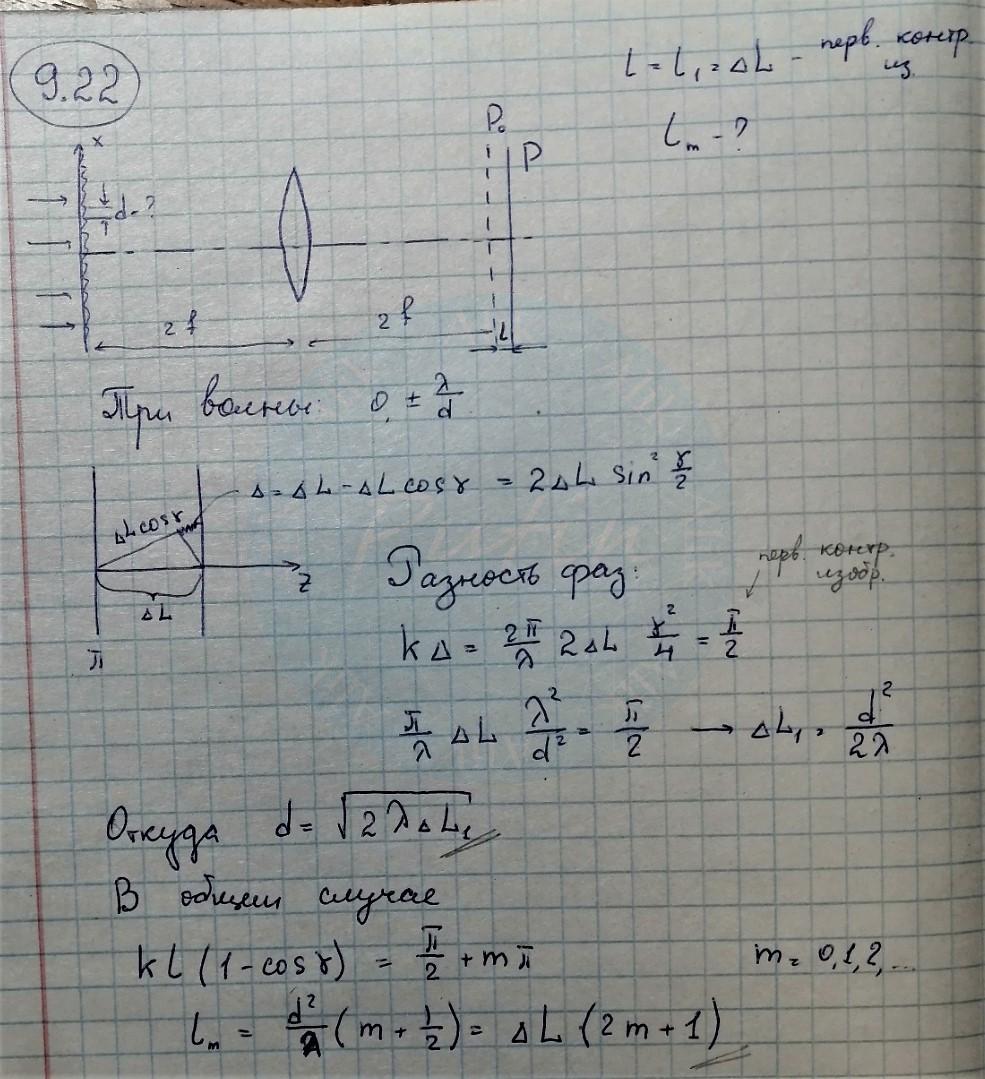 9.22
l = l₁ = ΔL - перв. контр. из.
lₘ - ?
x
P₀
P
d - ?
2f
2f
l
Три волны: 0, ± λ/d
Δ = ΔL - ΔL cos γ = 2ΔL sin² γ/2
ΔL cos γ
z
ΔL
П
Разность фаз:
перв. контр. изобр.
kΔ = 2π/λ 2ΔL γ²/4 = π/2
π/λ ΔL λ²/d² = π/2 → ΔL₁ = d²/2λ
Откуда d = √(2λΔL₁)
В общем случае
kl(1 - cos γ) = π/2 + mπ m = 0,1,2,...
lₘ = d²/λ (m + 1/2) = ΔL (2m + 1)